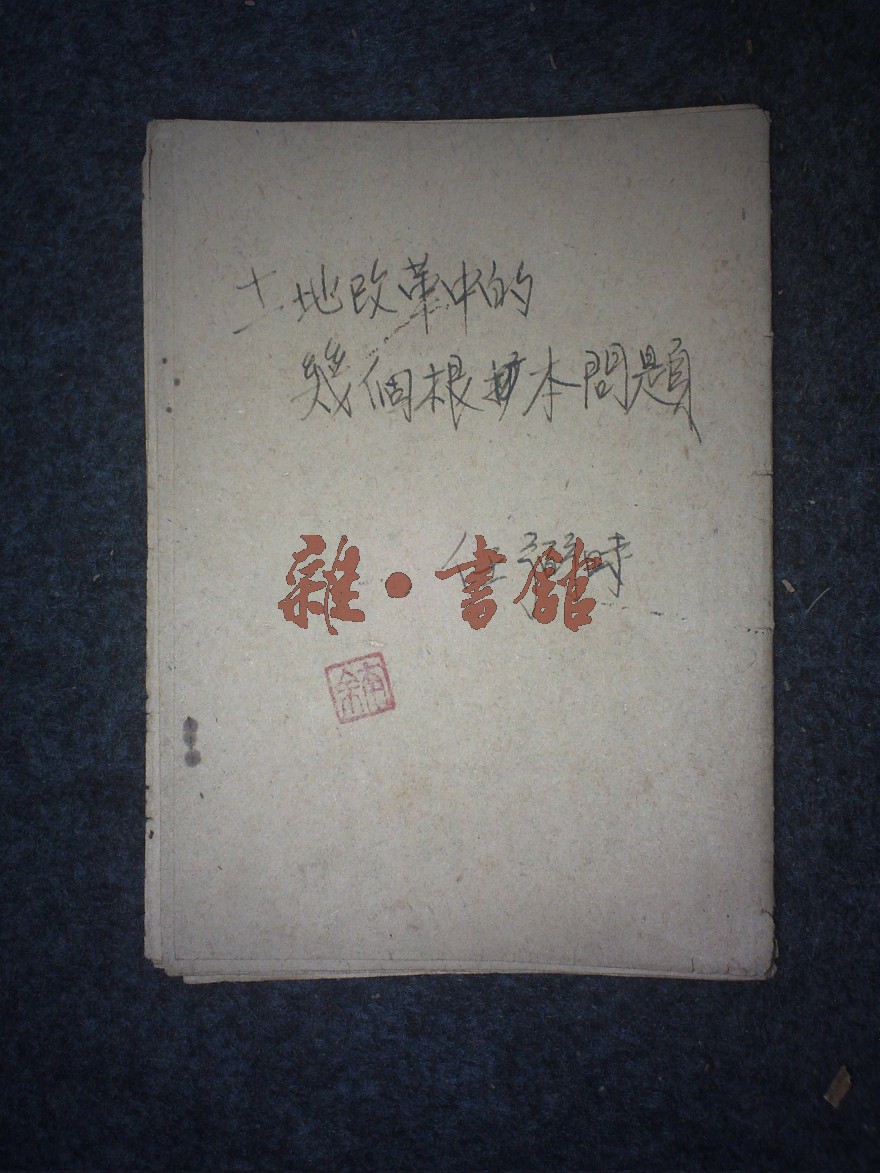 土地改革中的
幾個根本問題
任弼時
雜·書館